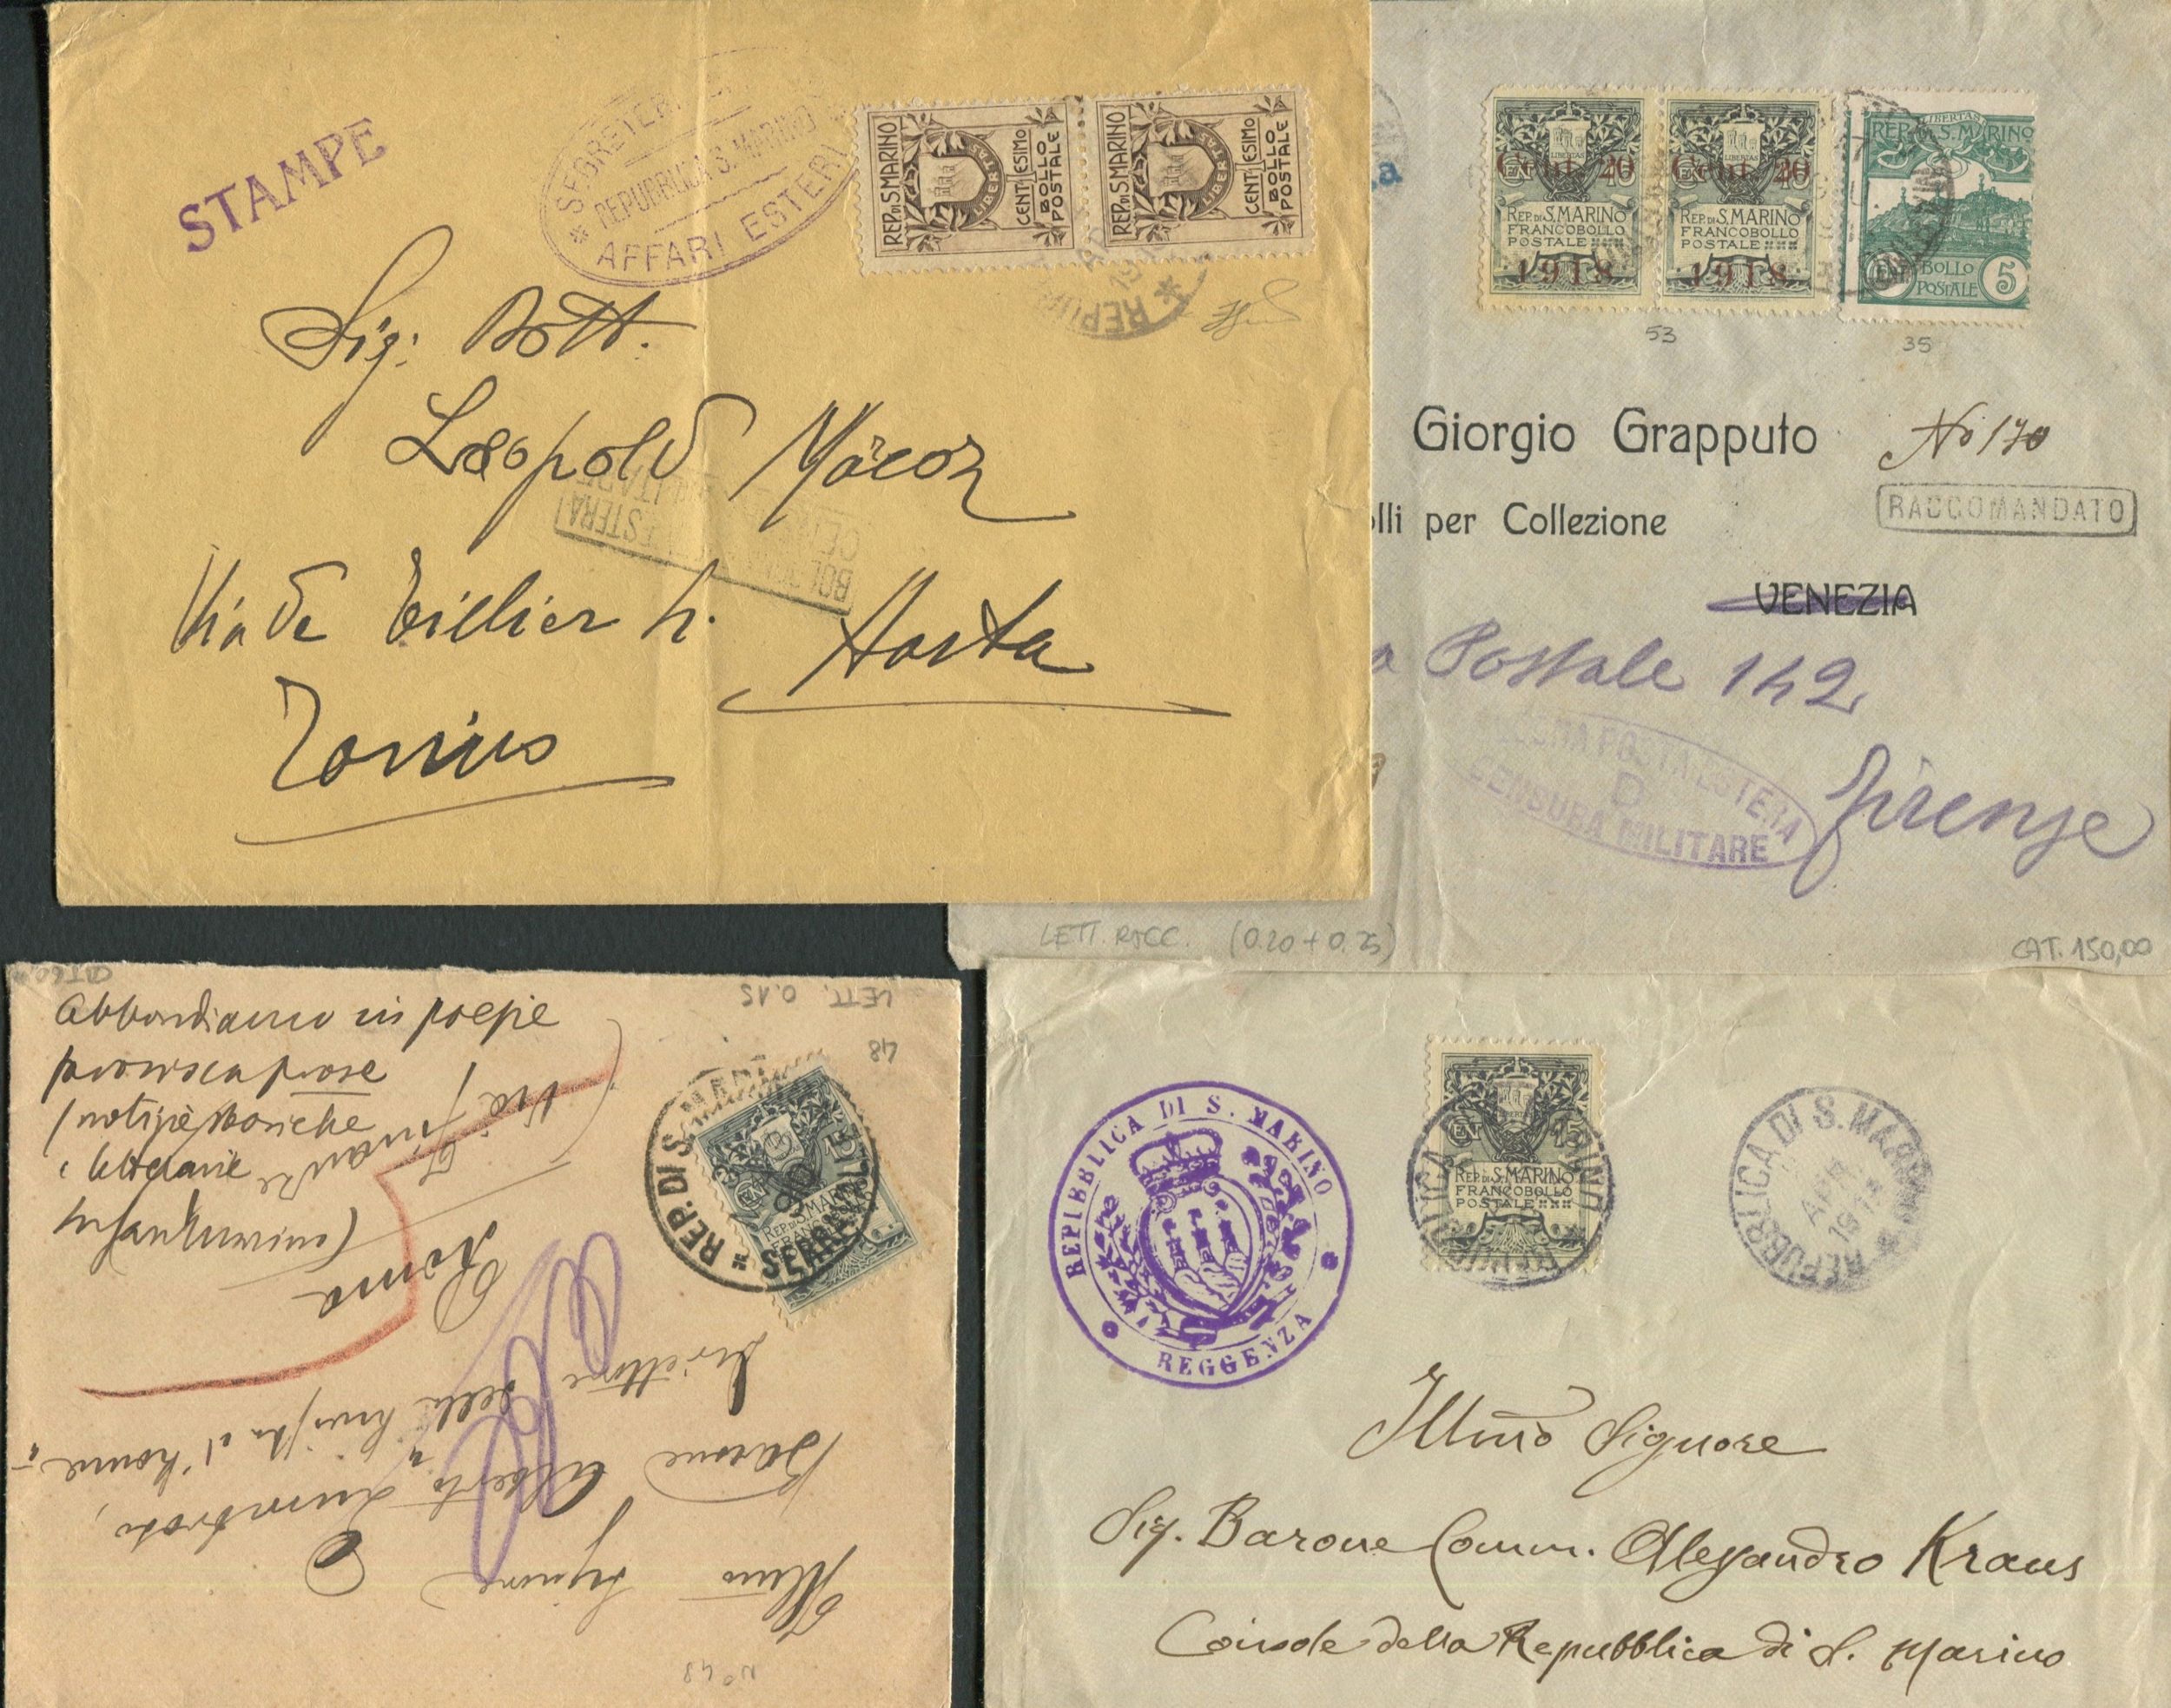 STAMPE
SEGRETERI
REPUBBLICA S. MARINO
AFFARI ESTERI
REP. DI S. MARINO
CENTESIMO
BOLLO
POSTALE
REP. DI S. MARINO
CENTESIMO
BOLLO
POSTALE
Sig. Dott.
Leopold
Via de Tillier
Aosta
Torino
BOL
ESTERA
Cent. 20
REP. DI S. MARINO
FRANCOBOLLO
POSTALE
1918
Cent. 20
REP. DI S. MARINO
FRANCOBOLLO
POSTALE
1918
LIBERTAS
REP. DI S. MARINO
BOLLO
POSTALE
5
53
35
Giorgio Grapputo
No 170
lli per Collezione
RACCOMANDATO
VENEZIA
a Postale 142
POSTA ESTERA
D
CENSURA MILITARE
Firenze
LETT. RACC. (0.20 + 0.25)
CAT. 150,00
LETT. 0.15
48
Abbondiamo in poesie
prose
notizie storiche
e letterarie
REP. DI S. MARINO
SERRAVALLE
CEN 15
REP. DI S. MARINO
Roma
Direttore della
Barone Alberto
Illmo Signore
No 48
REPUBBLICA DI S. MARINO
REGGENZA
CEN 15
REP. DI S. MARINO
FRANCOBOLLO
POSTALE
REPUBBLICA DI S. MARINO
APR
Illmo Signore
Sig. Barone Comm. Alessandro Kraus
Console della Repubblica di S. Marino